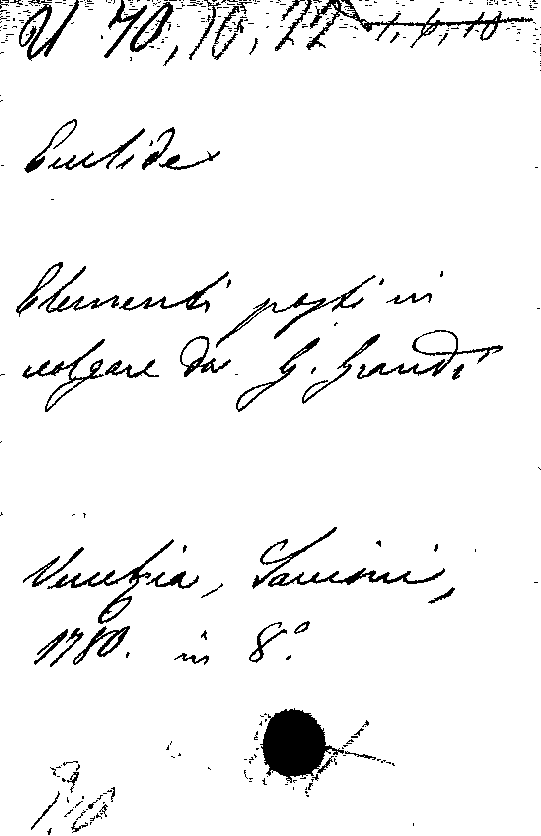 U 70, 10, 22 1, 6, 10
Euclide
Elementi posti in
volgare da G. Grandi
Venezia, Savioni,
1780. in 8.º